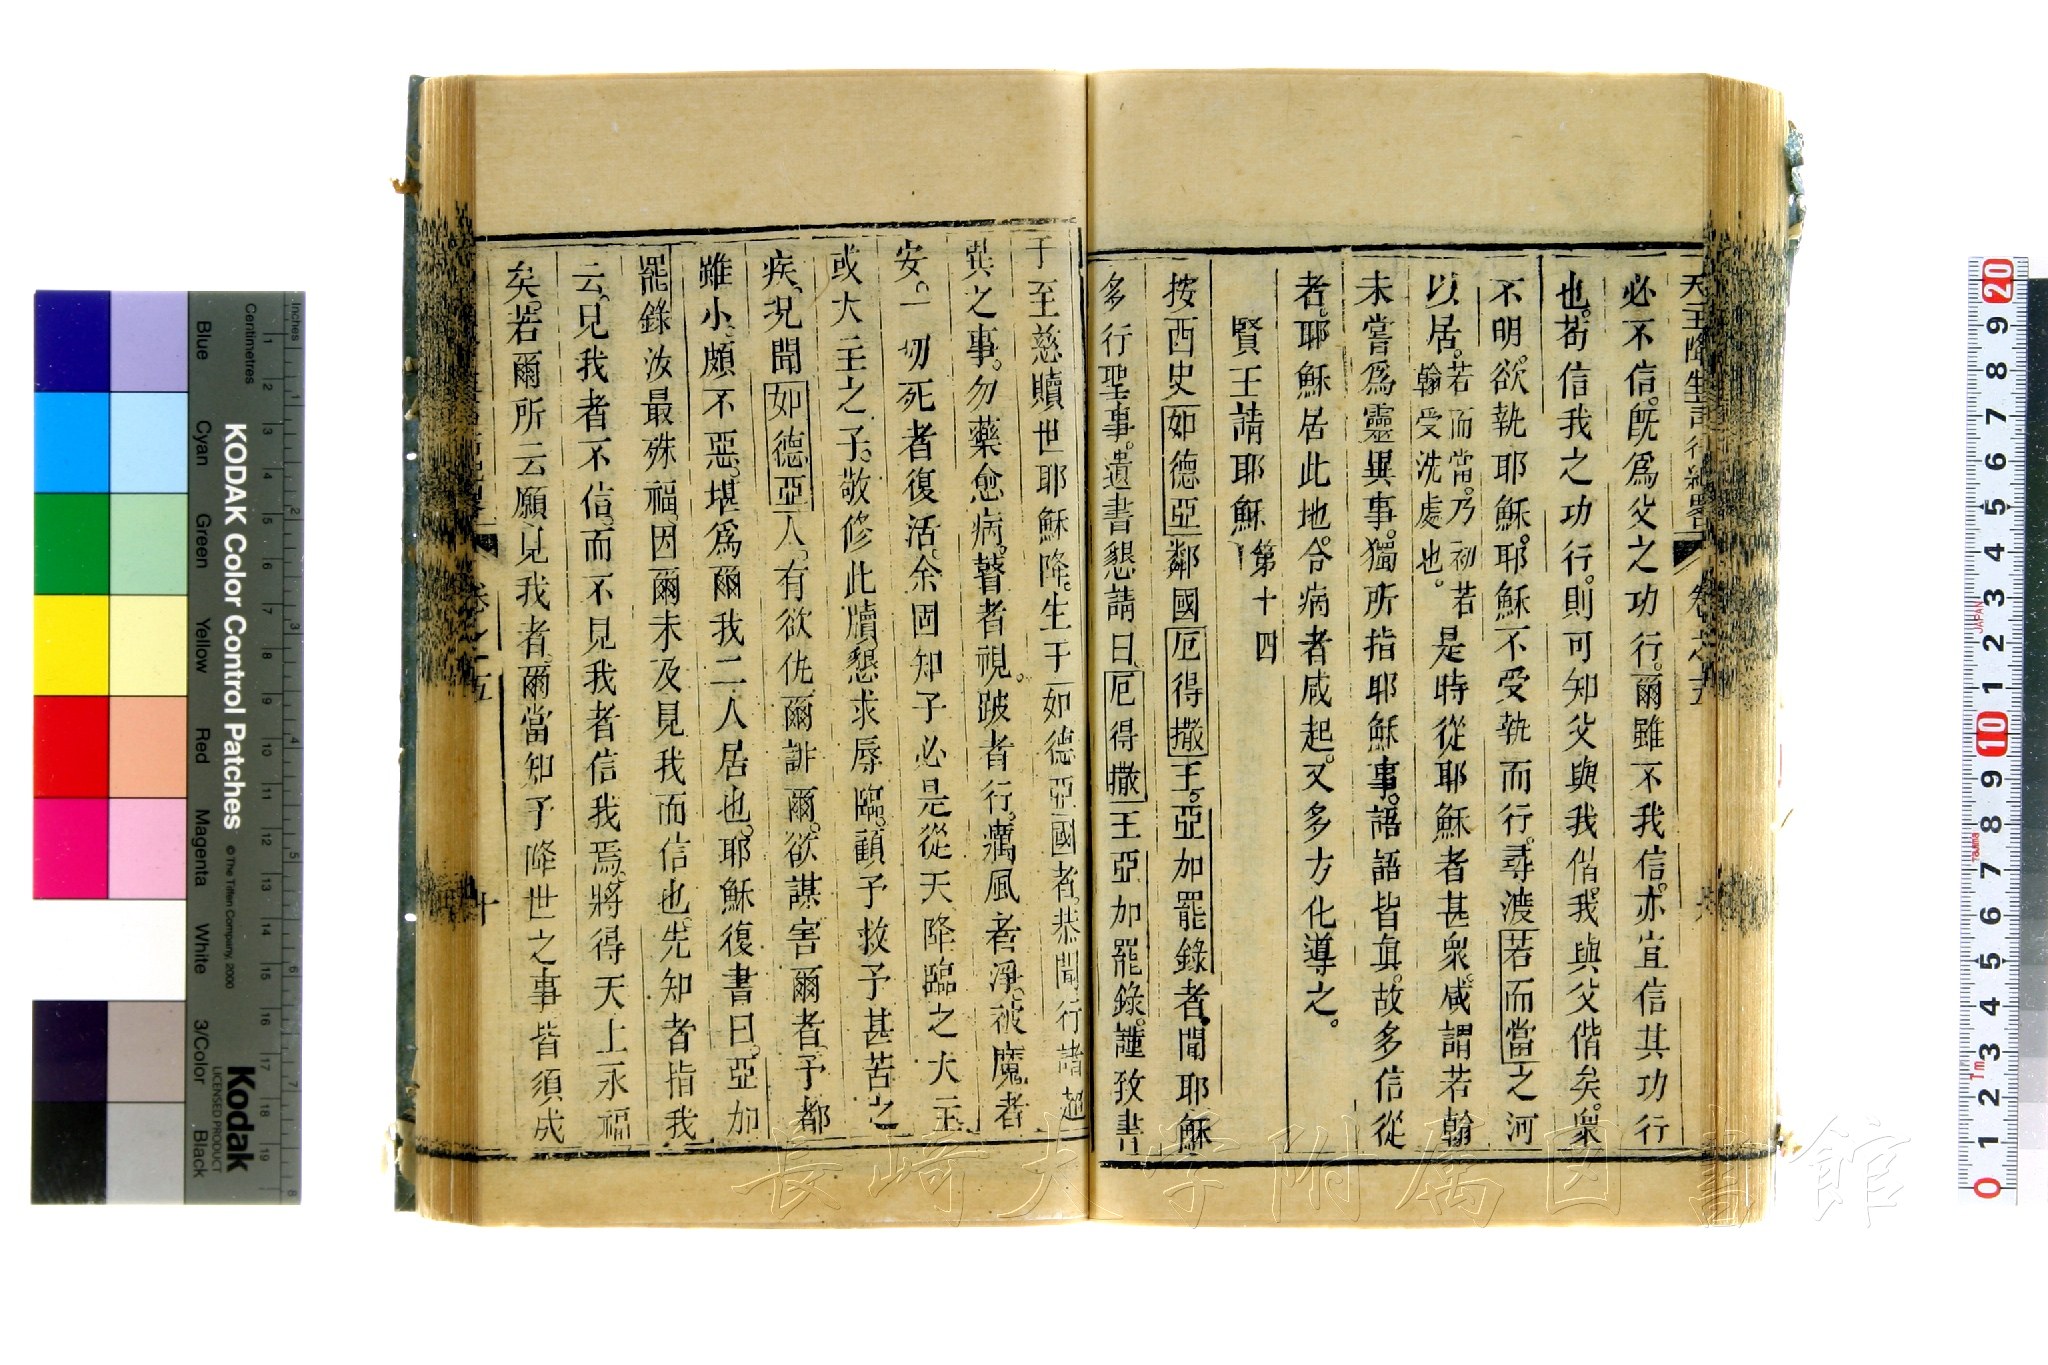 必不信。旣爲父之功行。爾雖不我信。亦宜信其功行
也。苟信我之功行。則可知父與我偕。我與父偕矣。衆
不明。欲執耶穌。耶穌不受執而行。尋渡若而當之河
以居。若而當。乃初若翰受洗處也。是時從耶穌者甚衆。咸謂若翰
未嘗爲靈異事。獨所指耶穌事。語語皆眞。故多信從
者。耶穌居此地。令病者咸起。又多方化導之。
賢王請耶穌 第十四
按西史如德亞鄰國厄得撒王。亞加罷錄者。聞耶穌
多行聖事。遺書懇請曰。厄得撒王亞加罷錄。謹致書
于至慈贖世耶穌降。生于如德亞國者。恭聞行諸超
異之事。勿藥愈病。瞽者視。跛者行。癘風者淨。被魔者
安。一切死者復活。余固知子必是從天降臨之大主
或大主之子。敬修此牘懇求辱臨。顧予救予甚苦之
疾。況聞如德亞人。有欲仇爾誹爾。欲謀害爾者。予都
雖小。頗不惡。堪爲爾我二人居也。耶穌復書曰。亞加
罷錄汝最殊福。因爾未及見我而信也。先知者指我
云。見我者不信。而不見我者信我焉。將得天上永福
矣。若爾所云願見我者。爾當知予降世之事皆須成
卷之五
十
KODAK Color Control Patches
© The Tiffen Company, 2000
Kodak
LICENSED PRODUCT
Inches
Centimetres
Blue
Cyan
Green
Yellow
Red
Magenta
White
3/Color
Black
長崎大学附属図書館
JAPAN